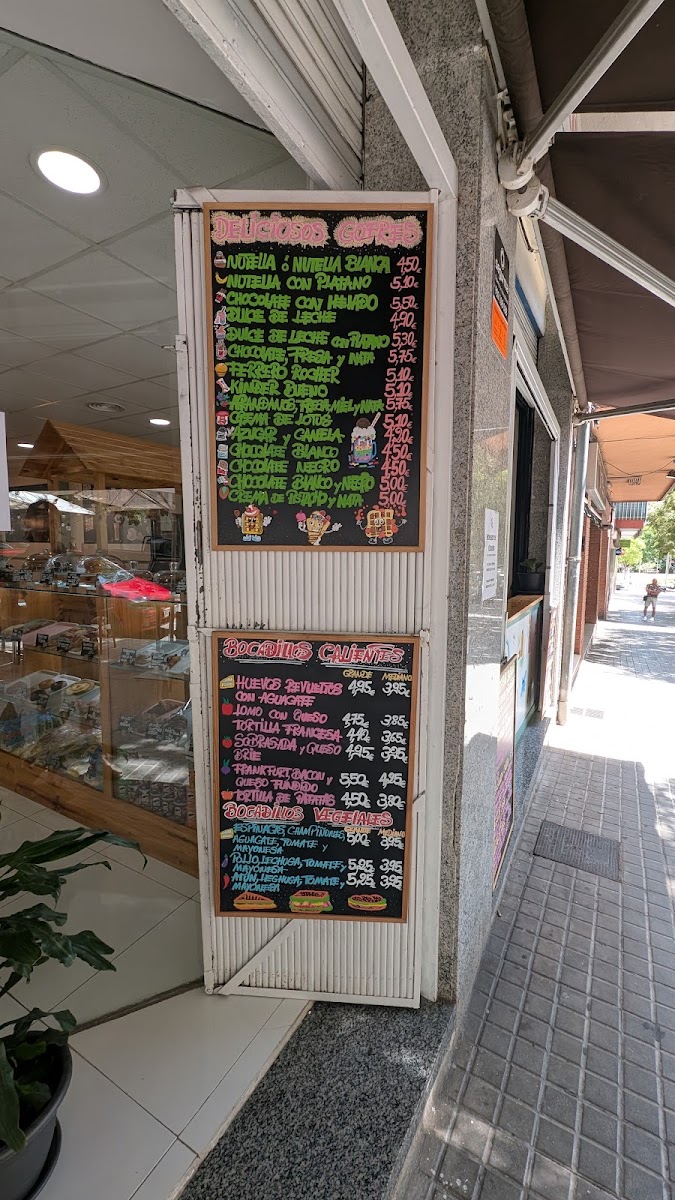 DELICIOSOS GOFRES
NUTELLA ó NUTELLA BLANCA 4,50€
NUTELLA CON PLATANO 5,10€
CHOCOLATE CON HELADO 5,50€
DULCE DE LECHE 4,90€
DULCE DE LECHE con PLATANO 5,30€
CHOCOLATE, FRESA y NATA 5,75€
FERRERO ROCHER 5,10€
KINDER BUENO 5,10€
ARANDANOS, FRESA, MIEL y NATA 5,75€
CREMA DE LOTUS 5,10€
AZUCAR y CANELA 4,90€
CHOCOLATE BLANCO 4,50€
CHOCOLATE NEGRO 4,50€
CHOCOLATE BLANCO y NEGRO 5,00€
CREMA DE PISTACHO y NATA 5,00€
BOCADILLOS CALIENTES
GRANDE MEDIANO
HUEVOS REVUELTOS 4,95€ 3,95€
CON AGUACATE
LOMO CON QUESO 4,75€ 3,85€
TORTILLA FRANCESA 4,40€ 3,65€
SOBRASADA y QUESO 4,95€ 3,95€
BRIE
FRANKFURT, BACON y 5,50€ 4,95€
QUESO FUNDIDO
TORTILLA DE PATATAS 4,50€ 3,80€
BOCADILLOS VEGETALES
GRANDE MEDIANO
ESPINACAS, CHAMPIÑONES, 5,00€ 3,95€
AGUACATE, TOMATE y
MAYONESA
POLLO, LECHUGA, TOMATE, 5,25€ 3,95€
MAYONESA
ATUN, LECHUGA, TOMATE y 5,25€ 3,95€
MAYONESA